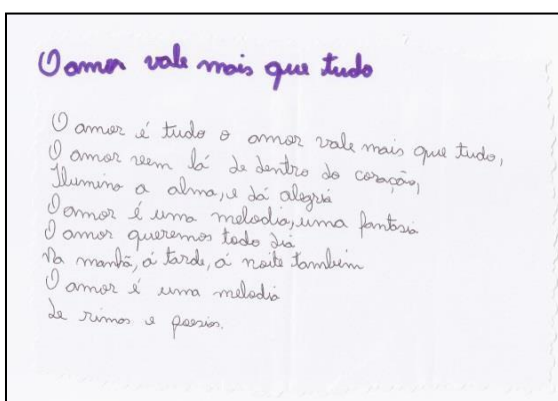 O amor vale mais que tudo
O amor é tudo o amor vale mais que tudo,
O amor vem lá de dentro do coração,
Ilumino a alma, e dá alegria
O amor é uma melodia, uma fantasia
O amor queremos todo dia
Na manhã, á tarde, á noite também
O amor é uma melodia
de rimas e poesias.